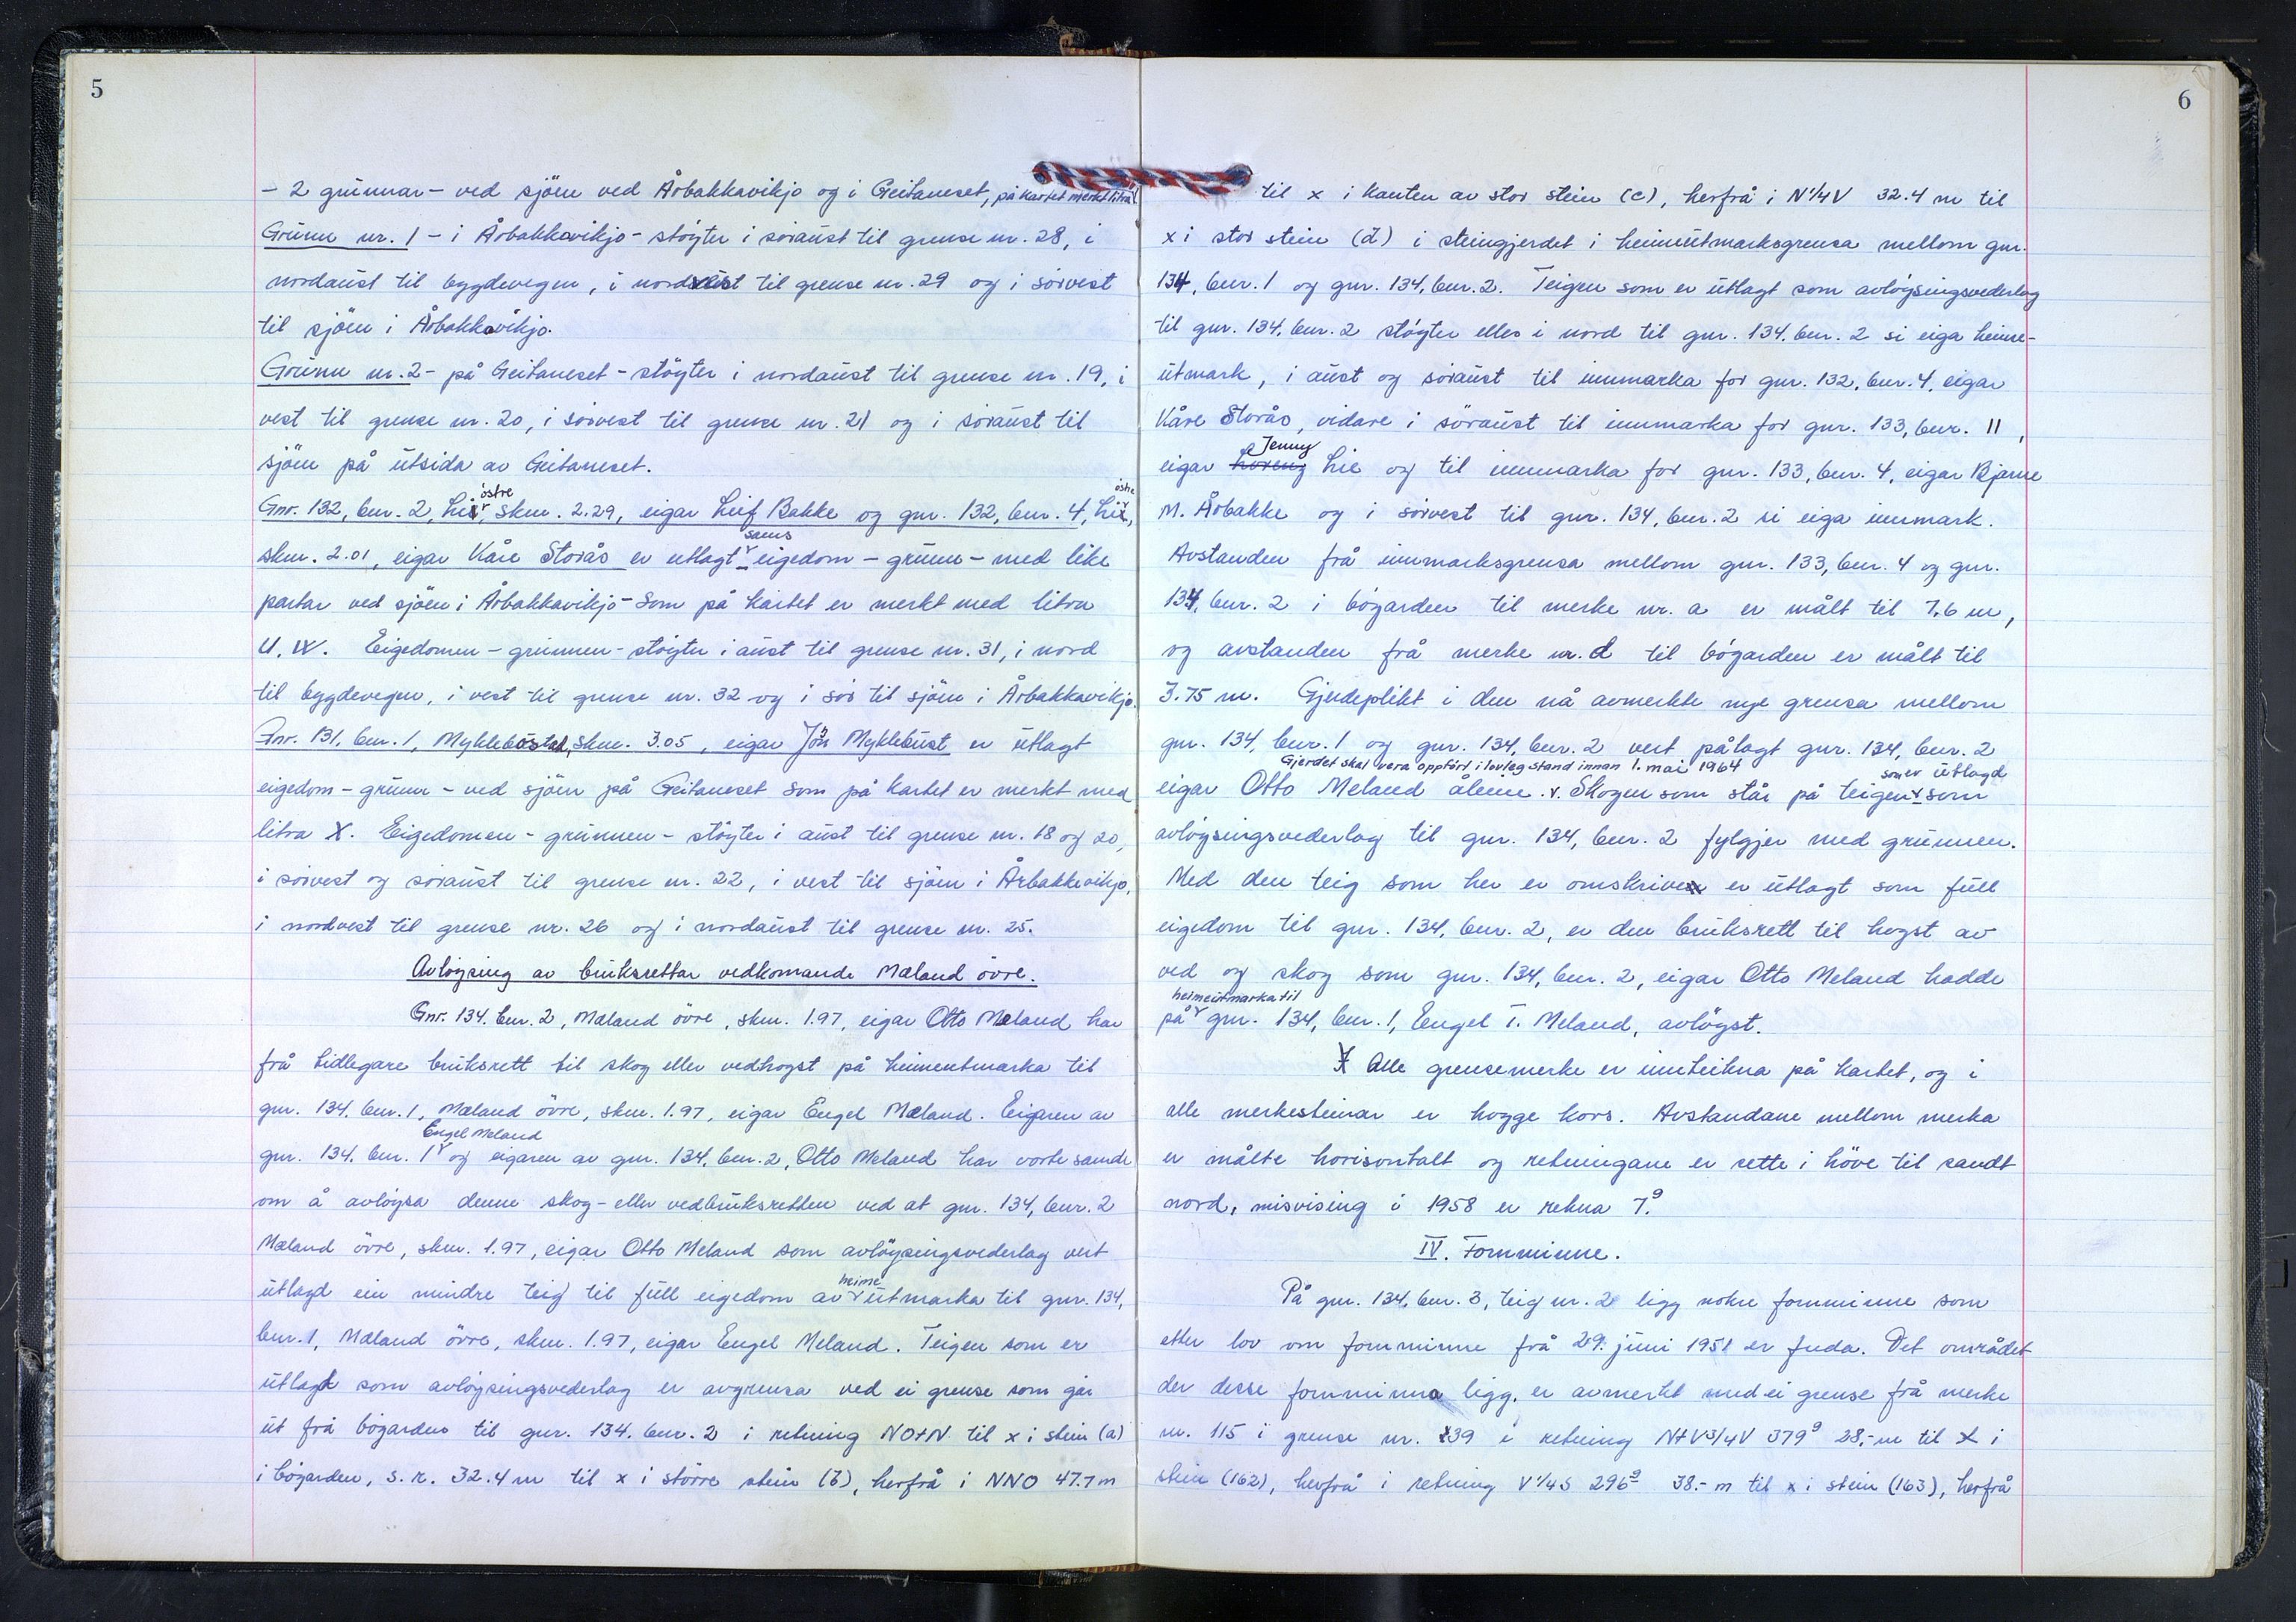 5
- 2 grunnar - ved sjöen ved Åsbakkavikjo og i Geitaneset, på kartet merkt litra
Grunn nr. 1 - i Årbakkavikjo - stöyter i söraust til grense nr. 28, i
nordaust til bygdevegen, i nordvest til grense nr. 29 og i sörvest
til sjöen i Årbakkavikjo.
Grunn nr. 2 - på Geitaneset - stöyter i nordaust til grense nr. 19, i
vest til grense nr. 20, i sörvest til grense nr. 21 og i söraust til
sjöen på utsida av Geitaneset.
Gnr. 132, bnr. 2, Li östre, skm. 2.29, eigar Leif Bakke og gnr. 132, bnr. 4, Li östre,
skm. 2.01, eigar Kåre Storås er utlagt sams eigedom - grunn - med like
partar ved sjöen i Årbakkavikjo - som på kartet er merkt med litra
U. W. Eigedomen - grunnen - stöyter i aust til grense nr. 31, i nord
til bygdevegen, i vest til grense nr. 32 og i sör til sjöen i Årbakkavikjo.
Gnr. 131, bnr. 1, Myklebostad, skm. 3.05, eigar Jon Myklebust er utlagt
eigedom - grunn - ved sjöen på Geitaneset som på kartet er merkt med
litra X. Eigedomen - grunnen - stöyter i aust til grense nr. 18 og 20,
i sörvest og söraust til grense nr. 22, i vest til sjöen i Årbakkavikjo,
i nordvest til grense nr. 26 og i nordaust til grense nr. 25.
Avlöysing av bruksrettar vedkomande Mæland övre.
Gnr. 134. bnr. 2, Mæland övre, skm. 1.97, eigar Otto Meland har
frå tidlegare bruksrett til skog eller vedhogst på heimeutmarka til
gnr. 134. bnr. 1, Mæland övre, skm. 1.97, eigar Engel Meland. Eigaren av
gnr. 134. bnr. 1 Engel Meland og eigaren av gnr. 134. bnr. 2, Otto Meland har vorte samde
om å avlöysa denne skog- eller vedbruksretten ved at gnr. 134, bnr. 2
Mæland övre, skm. 1.97, eigar Otto Meland som avlöysingsvederlag vert
utlagd ein mindre teig til full eigedom av heimeutmarka til gnr. 134,
bnr. 1, Mæland övre, skm. 1.97, eigar Engel Meland. Teigen som er
utlagt som avlöysingsvederlag er avgrensa ved ei grense som går
ut frå bögarden til gnr. 134. bnr. 2 i retning NO+N til x i stein (a)
i bögarden, s. r. 32.4 m til x i större stein (b), herfrå i NNO 47.7 m
6
til x i kanten av stor stein (c), herfrå i N 1/4 V 32.4 m til
x i stor stein (d) i steingjerdet i heimeutmarksgrensa mellom gnr.
134, bnr. 1 og gnr. 134, bnr. 2. Teigen som er utlagt som avlöysingsvederlag
til gnr. 134, bnr. 2 stöyter elles i nord til gnr. 134, bnr. 2 si eiga heime-
utmark, i aust og söraust til innmarka for gnr. 132, bnr. 4, eigar
Kåre Storås, vidare i söraust til innmarka for gnr. 133, bnr. 11,
eigar Jenny Lie og til innmarka for gnr. 133, bnr. 4, eigar Bjarne
M. Årbakke og i sörvest til gnr. 134, bnr. 2 si eiga innmark.
Avstanden frå innmarksgrensa mellom gnr. 133, bnr. 4 og gnr.
134, bnr. 2 i bögarden til merke nr. a er målt til 7,6 m,
og avstanden frå merke nr. d til bögarden er målt til
3.75 m. Gjerdeplikt i den nå avmerkte nye grensa mellom
gnr. 134, bnr. 1 og gnr. 134, bnr. 2 vert pålagt gnr. 134, bnr. 2
Gjerdet skal vera oppfört i lovleg stand innan 1. mai 1964
eigar Otto Meland åleine. Skogen som står på teigen som er utlagd som
avlöysingsvederlag til gnr. 134, bnr. 2 fylgjer med grunnen.
Med den teig som her er omskriven er utlagt som full
eigedom til gnr. 134, bnr. 2, er den bruksrett til hogst av
ved og skog som gnr. 134, bnr. 2, eigar Otto Meland hadde
på heimeutmarka til gnr. 134, bnr. 1, Engel T. Meland, avlöyst.
Alle grensemerke er innteikna på kartet, og i
alle merkesteinar er hogge kors. Avstandane mellom merka
er målte horisontalt og retningane er sette i höve til sandt
nord, misvising i 1958 er rekna 7.g
IV. Fornminne.
På gnr. 134, bnr. 3, teig nr. 2 ligg nokre fornminne som
etter lov om fornminne frå 29. juni 1951 er freda. Det området
der desse fornminna ligg, er avmerkt med ei grense frå merke
nr. 115 i grense nr. 39 i retning N+V 3/4 V 379g 28,- m til x i
stein (162), herfrå i retning V 1/4 S 296g 38.- m til x i stein (163), herfrå